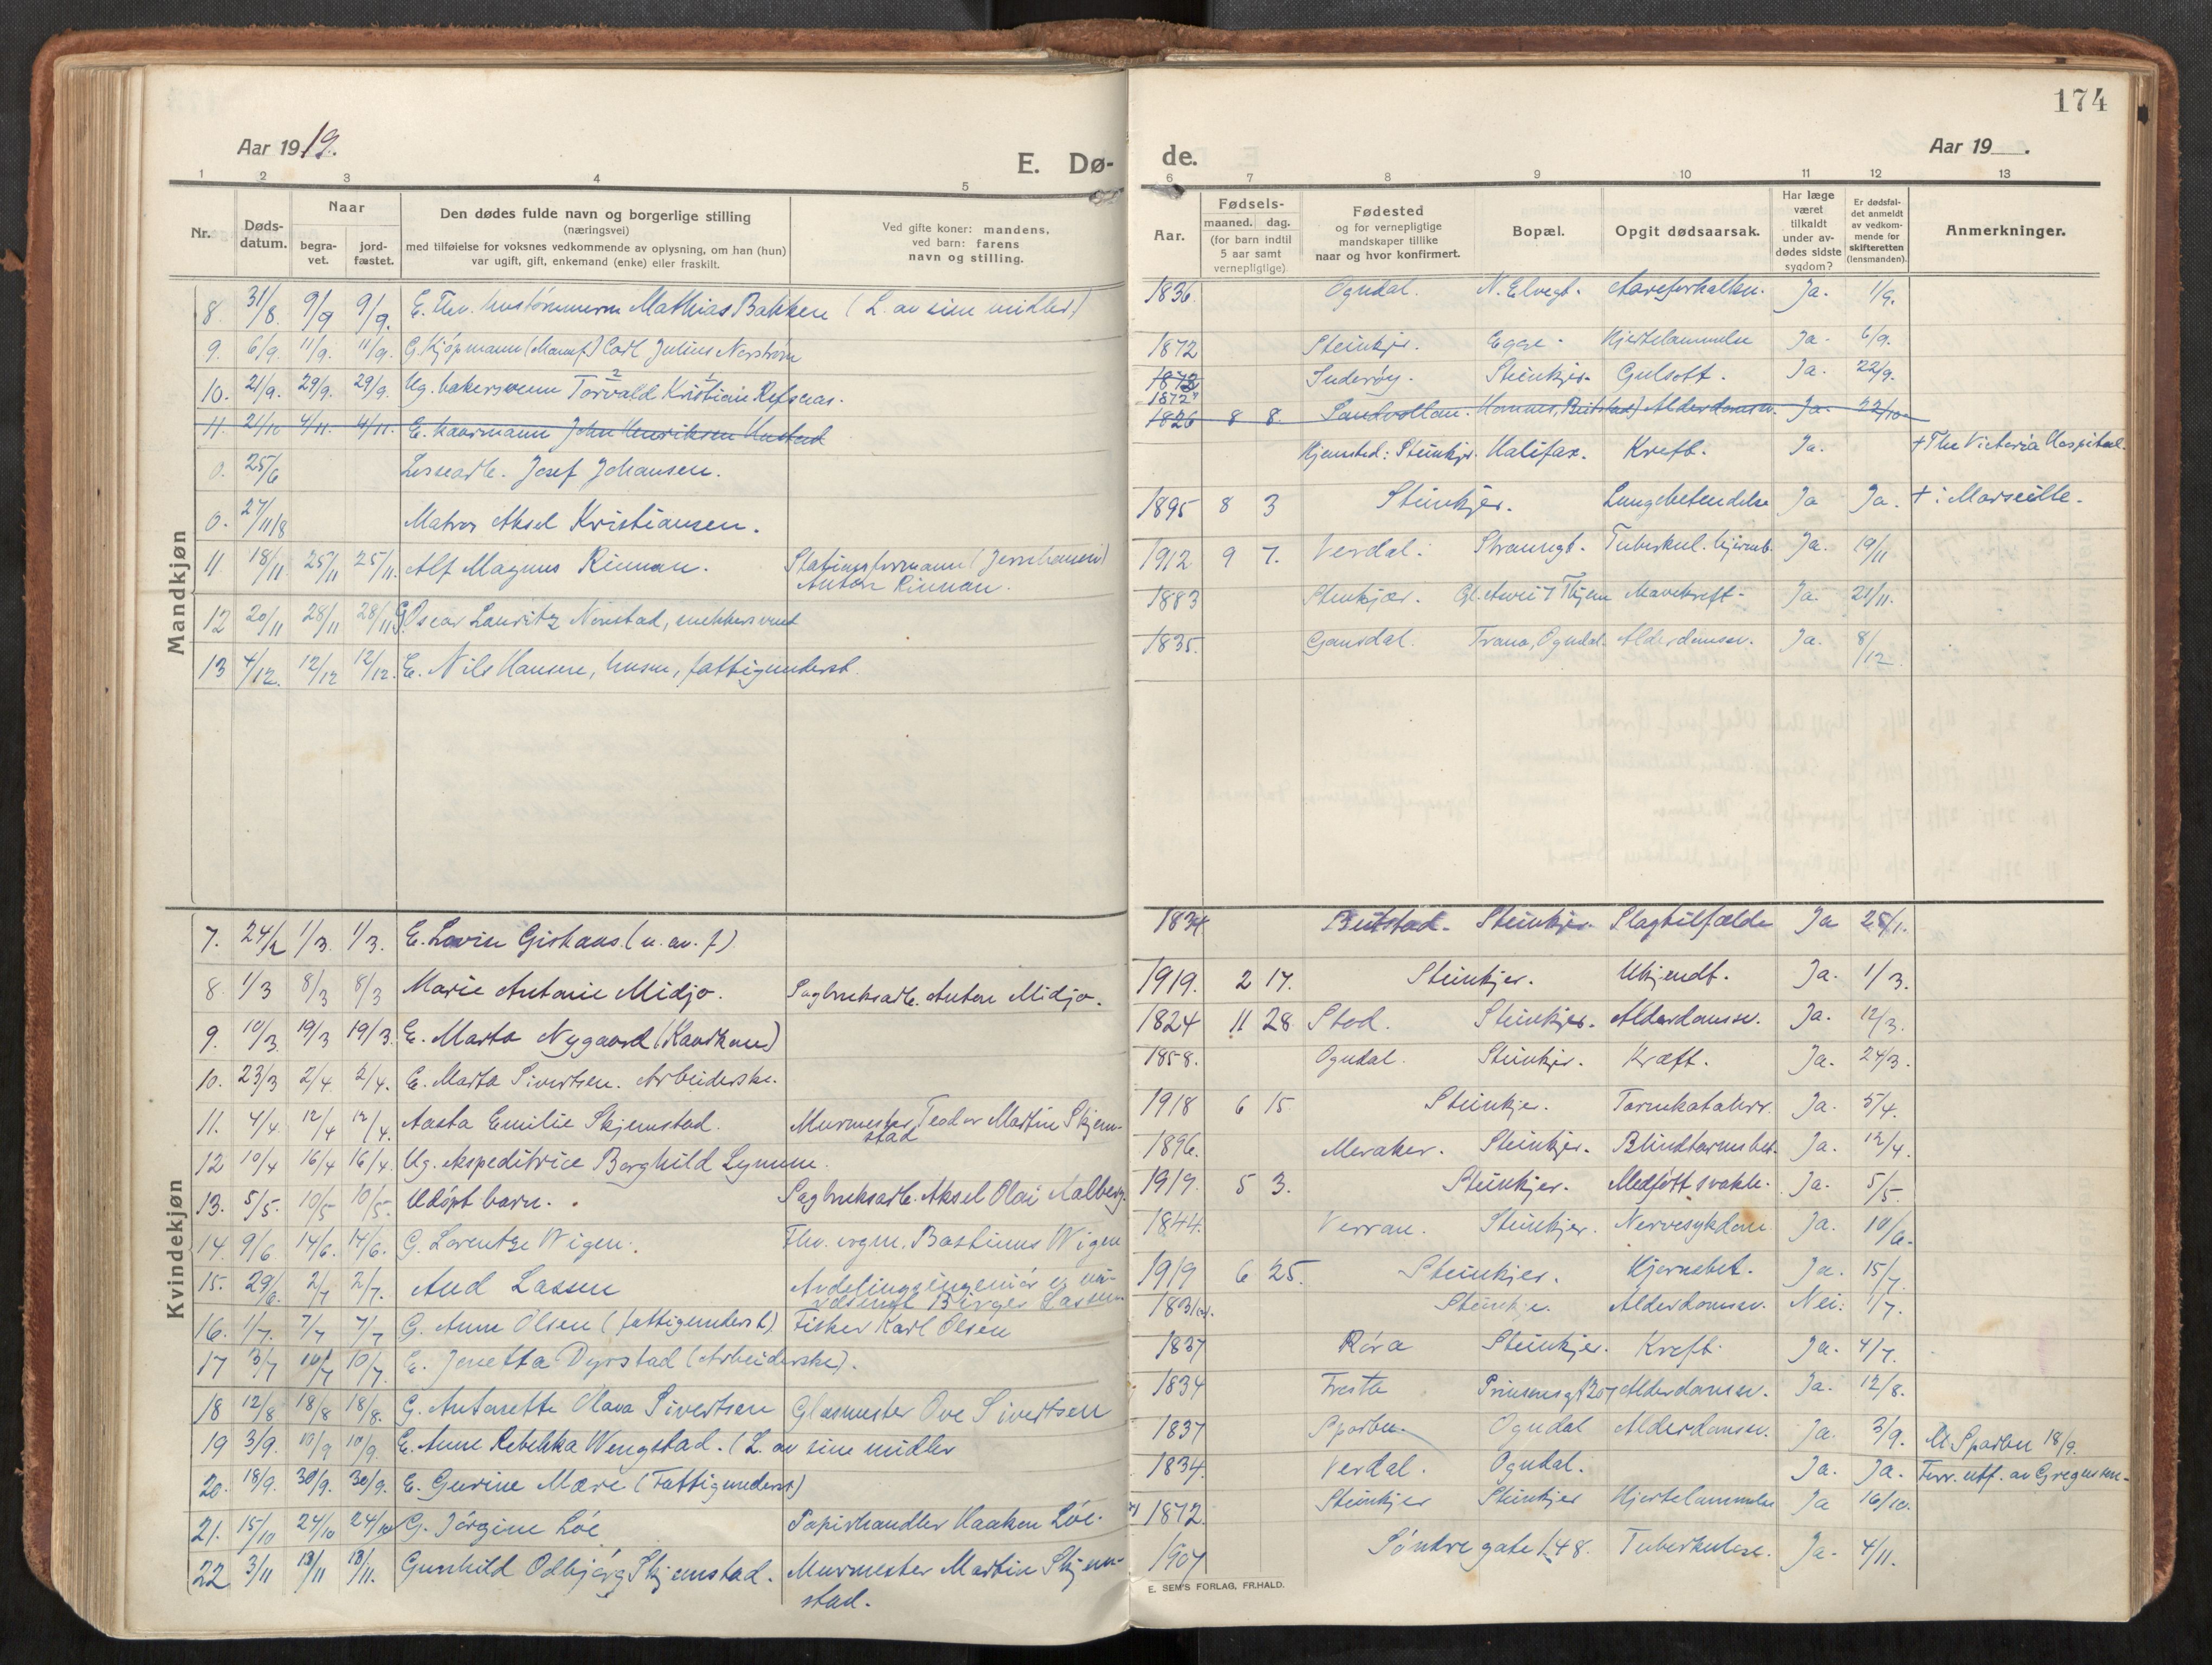 174
Aar 1919.
E. Dø-
de.
Aar 19 .
1 2 3 4 5
6 7 8 9 10 11 12 13
Nr.
Døds-
datum.
Naar
begra-
vet.
jord-
fæstet.
Den dødes fulde navn og borgerlige stilling
(næringsvei)
med tilføielse for voksnes vedkommende av oplysning, om han (hun)
var ugift, gift, enkemand (enke) eller fraskilt.
Ved gifte koner: mandens,
ved barn: farens
navn og stilling.
Aar.
Fødsels-
maaned. dag.
(for barn indtil
5 aar samt
vernepligtige)
Fødested
og for vernepligtige
mandskaper tillike
naar og hvor konfirmert.
Bopæl.
Opgit dødsaarsak.
Har læge
været
tilkaldt
under av-
dødes sidste
sygdom?
Er dødsfal-
det anmeldt
av vedkom-
mende for
skifteretten
(lensmanden).
Anmerkninger.
Mandkjøn
8. 31/8 9/9 9/9. E. Fhv. Mathias Bakken (L. av sine midler) 1836 Ogndal. N. Elvegt. Aareforkalkn. Ja. 1/9.
9. 6/9. 11/9. 11/9. G. Kjøpmann (Manuf.) Carl Julius Norstrøm 1872 Steinkjer. Egge. Hjertelammelse Ja. 6/9.
10. 21/9. 29/9. 29/9. Ug. bakersvenn Torvald Kristian Refsaas. 1872 Inderøy. Steinkjer. Gulsott. Ja. 22/9.
11. 21/10 4/11. 4/11. E. kaarmann John Henriksen Hustad 1826 8 8. Sandvollan. Beitstad) Alderdomssv. Ja. 22/10
0. 25/6 Josef Johansen. Hjemsted: Steinkjer. Halifax. Kreft. Ja. + The Victoria Hospital.
0. 27/11/18 Matros Aksel Kristiansen. 1895 8 3 Steinkjer. Lungebetendelse Ja Ja. + i Marseille.
11. 18/11 25/11 25/11. Alf Magnus Rinnan. Stationsformann (Jernbanen) Anton Rinnan. 1912 9 7. Verdal. Strandgt. Tuberkul. hjerneb. Ja. 19/11
12 20/11 28/11 28/11 G. Oscar Lauritz Nonstad, snekkersvend 1883 Stenkjær. Mavekreft. Ja. 21/11.
13 4/12. 12/12 12/12. E. Nils Hansen, husm, fattigunderst. 1835. Trana, Ogndal. Alderdomssv. Ja. 8/12
Kvindekjøn
7. 24/2 1/3. 1/3. E. Lovise Gishaas (u. av. f.) 1834 Beitstad. Steinkjer. Slagtilfælde Ja 25/1.
8. 1/3 8/3 8/3 Marie Antonie Midjo. Sagbruksarb. Anton Midjo. 1919. 2 17. Steinkjer. Ukjendt. Ja. 1/3.
9. 10/3. 19/3 19/3. E. Marta Nygaard (Kaarkone) 1824 11 28 Stod. Steinkjer. Alderdomssv. Ja. 12/3.
10. 23/3 2/4. 2/4. E. Marta Sivertsen. Arbeiderske. 1858. Ogndal. Steinkjer. Kræft. Ja. 24/3.
11. 4/4. 12/4 12/4. Aasta Emilie Skjemstad. Murmester Teodor Martin Skjem-
stad 1918 6 15 Steinkje. Tarmkatahrr. Ja. 5/4.
12 10/4 16/4 16/4. Ug. ekspeditrice Borghild Lynum. 1896. Meraker. Steinkjer. Blindtarmsbet. Ja. 12/4.
13. 5/5. 10/5 10/5. Udøpt barn. Sagbruksarb. Aksel Olai Aalberg. 1919. 5 3. Steinkjer. Medfött svakh. Ja. 5/5.
14. 9/6 14/6. 14/6. G. Lorentze Wigen. Fhv. Bastinus Wigen 1844. Verran. Steinkjer. Nervesykdom Ja. 10/6.
15. 29/6. 2/7 2/7. Aud Lassen Avdelingsingeniør Birger Lassen 1919 6 25. Steinkjer. Hjernebet. Ja. 15/7
16. 1/7. 7/7 7/7 G. Anne Olsen (fattigunderst.) Fisker Karl Olsen Steinkje. Alderdomssv. Nei. 1/7.
17 3/7 10/7 10/7. E. Jenetta Dyrstad (Arbeiderske). 1837 Røra Steinkjer. Kreft. Ja. 4/7.
18 12/8 18/8 18/8. G. Antonette Olava Sivertsen Glasmester Ove Sivertsen 1834 Frosta Alderdomssv. Ja. 12/8.
19 3/9. 10/9 10/9. E. Anne Rebekka Wengstad. (L. av sine midler 1837 Sparbu. Ogndal Alderdomssv. Ja. 3/9. M. Sparbu 18/9.
20. 18/9. 30/9. 30/9. E. Gurine Mære (Fattigunderst) 1834. Verdal. Ogndal. Ja. Ja. Forr. utf. av Gregersen.
21. 15/10 24/10 24/10 G. Jörgine Löe Papirhandler Haakon Löe. 1872. Steinkjer Steinkjer Hjertelammelse Ja 16/10.
22 3/11 13/11 13/11. Gunhild Odbjörg Skjemstad. Murmester Martin Skjem-
stad. 1907 Söndre gate 148. Tuberkulose. Ja. 4/11.
E. SEM'S FORLAG, FR.HALD.